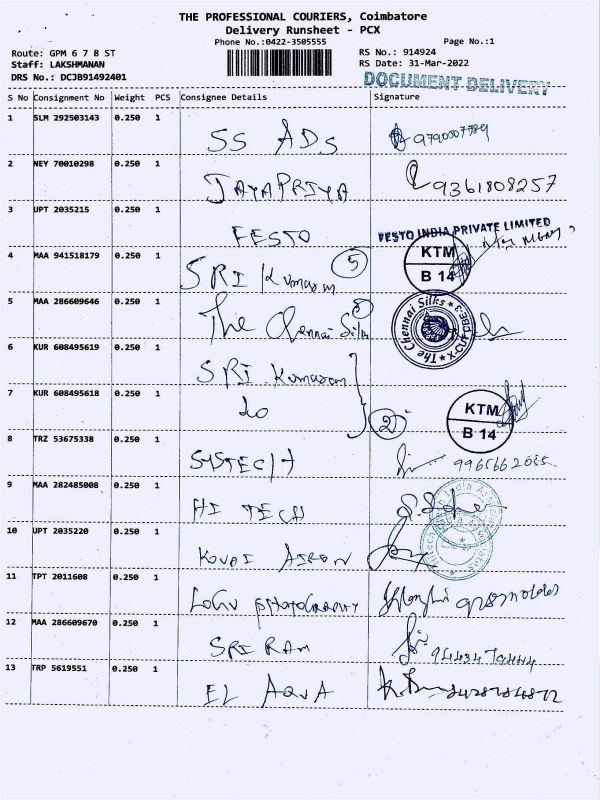 THE PROFESSIONAL COURIERS, Coimbatore
Delivery Runsheet - PCX
Phone No.:0422-3505555 Page No.:1
Route: GPM 6 7 8 ST RS No.: 914924
Staff: LAKSHMANAN RS Date: 31-Mar-2022
DRS No.: DCJB91492401 DOCUMENT DELIVERY
S No Consignment No Weight PCS Consignee Details Signature
1 SLM 292503143 0.250 1 SS ADS
2 NEY 70010298 0.250 1 JAYAPRIYA 9361808257
3 UPT 2035215 0.250 1 FESTO FESTO INDIA PRIVATE LIMITED
4 MAA 941518179 0.250 1 SRI Kumaran 5 KTM B 14
5 MAA 286609646 0.250 1 The Chennai Silks The Chennai Silks
6 KUR 608495619 0.250 1 SRI Kumaran
7 KUR 608495618 0.250 1 do 2 KTM B 14
8 TRZ 53675338 0.250 1 SYSTECH
9 MAA 282485008 0.250 1 HI TECH
10 UPT 2035220 0.250 1 KOVAI
11 TPT 2011608 0.250 1 LOGU PHOTOGRAPHY
12 MAA 286609670 0.250 1 SRI RAM
13 TRP 5619551 0.250 1 EL AQUA